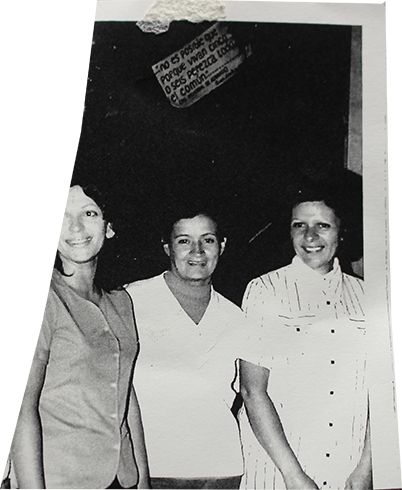 "no es posible que
porque vivan cinco
o seis perezca todo
el común."